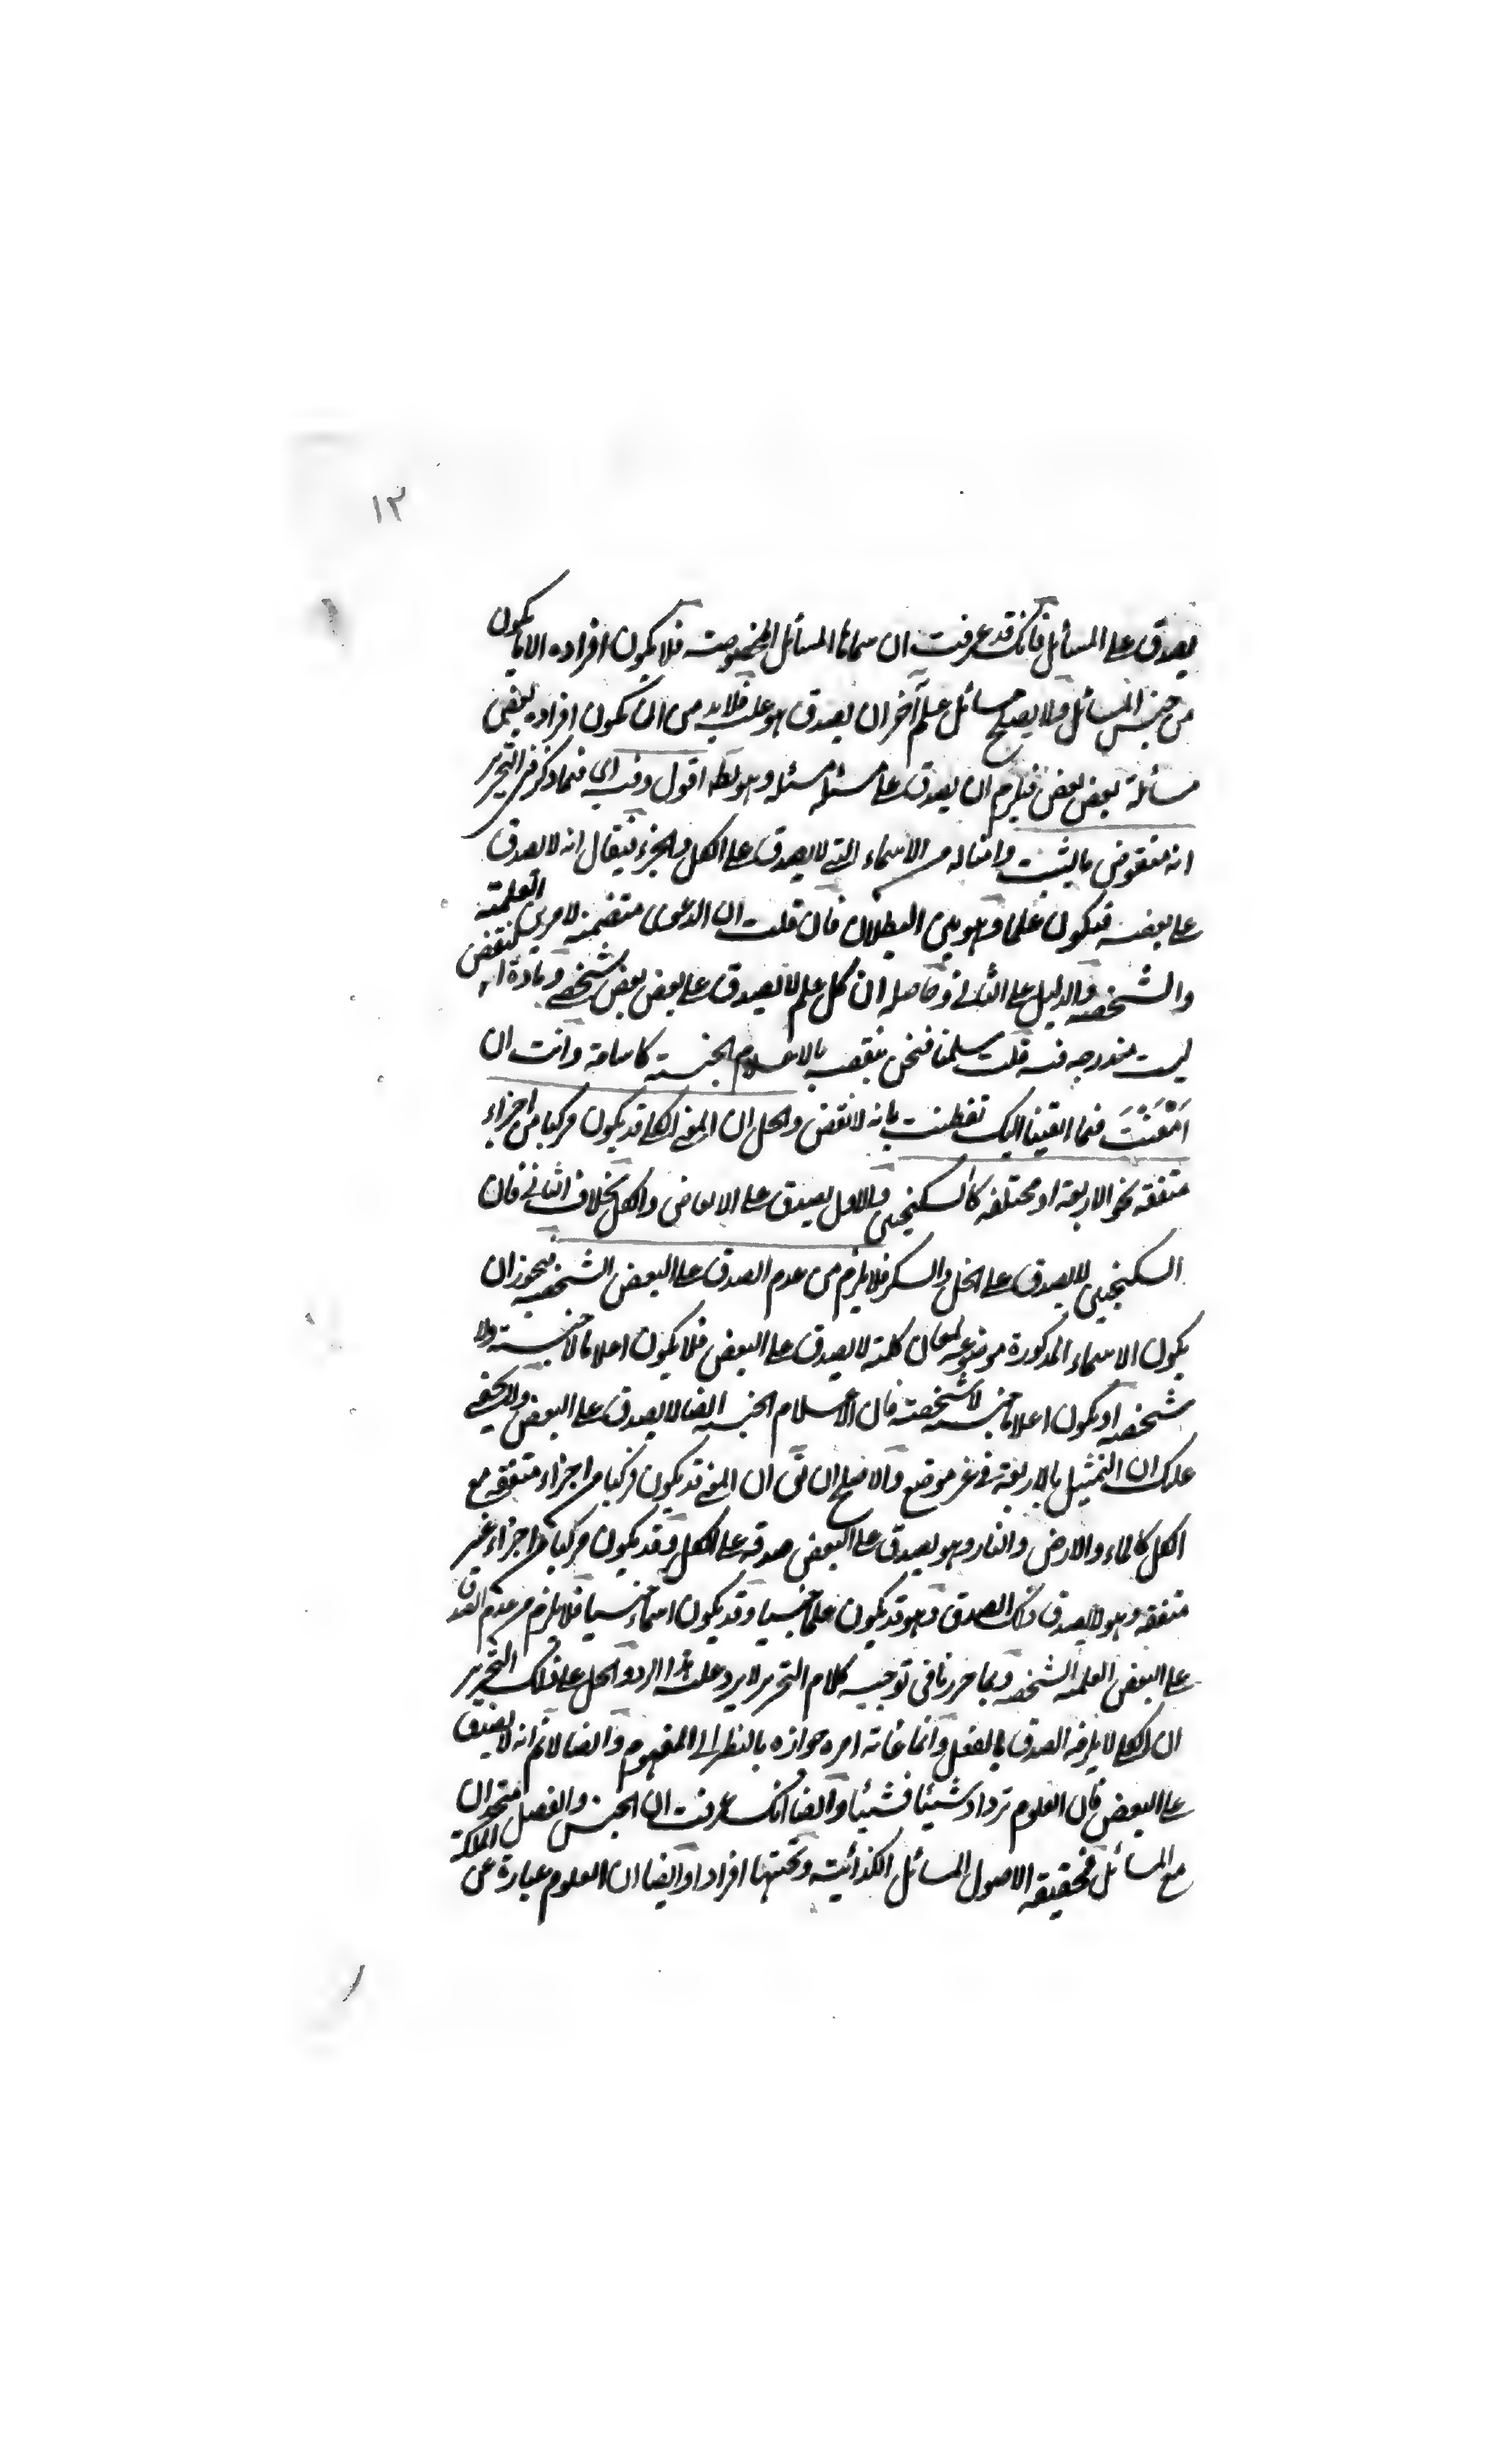 ١٢
يصدق على المسائل فانك قد عرفت ان سماها المسائل المخصوصة فلا يكون افراده الا ما يكون
من جنس المسائل ولا يصلح مسائل علم آخر ان يصدق هو عليه فلا بد من ان يكون افراده بعض
مسائله بعض بعض فيلزم ان يصدق على مسئلة مسئلة وهو بط اقول وفيه اى فيما ذكر فى التحرير
انه منقوض بالبيت وامثاله من الاسماء التى لا يصدق على الكل والجزء فيقال انه لا يصدق
على بعضه فيكون علما وهو بين البطلان فان قلت ان الدعوى متضمنة لامرين العلمية
والشخصية والدليل على الثانى وحاصله ان كل علم لا يصدق على بعض بعض شخصى ومادة النقض
ليست مندرجة فيه قلت سلمنا فنحن ننقضه بالاعلام الجنسية كاسامة وانت ان
اَمْعَنْتَ فيما القينا اليك تفطنت بانه لا نقض والحل ان المعنى الكلى قد يكون مركبا من اجزاء
متفقة نحو الاربعة او مختلفة كالسكنجبين والاول يصدق على الابعاض والكل بخلاف الثانى فان
السكنجبين لا يصدق على الخل والسكر فلا يلزم من عدم الصدق على البعض الشخصية فيجوز ان
يكون الاسماء المذكورة موضوعة لمعان كلية لا يصدق على البعض فلا يكون اعلاما لا جنسية ولا
شخصية او يكون اعلاما جنسية لا شخصية فان الاعلام الجنسية ايضا لا يصدق على البعض ولا يخفى
عليك ان التمثيل بالاربعة فى غير موضع والاصلح ان يق ان المعنى قد يكون مركبا من اجزاء متفقة مع
الكل كالماء والارض والنار وهو يصدق على البعض صدقه على الكل وقد يكون مركبا من اجزاء غير
متفقة وهو لا يصدق ذلك الصدق وهو قد يكون علما جنسيا وقد يكون اسماء جنسيا فلا يلزم من عدم الصدق
على البعض العلمية الشخصية وبما حررنا فى توجيه كلام التحرير لا يرد عليه هذا الرد والحل على ذلك التحرير
ان الكلى لا يلزمه الصدق بالفعل وانما غاية امره جوازه بالنظر الى المفهوم وايضا لا نم انه لا يصدق
على البعض فان العلوم تزداد شيئا فشيئا وايضا انك عرفت ان الجنس والفصل متحدان
مع المسائل فحقيقة الاصول المسائل الكذائية وتحتها افراد وايضا ان العلوم عبارة عن الملكة